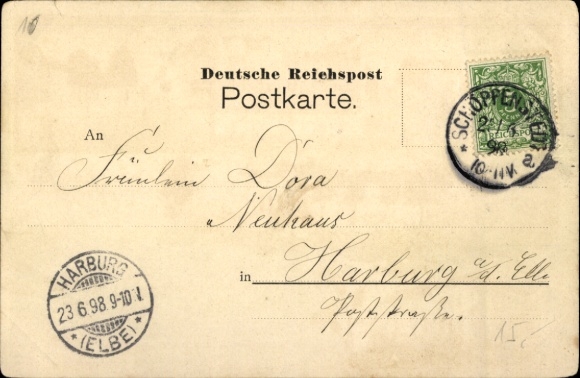 10
Deutsche Reichspost
Postkarte.
SCHÖPPENSTEDT
98
10-11V. a.
An
Fräulein Dora
Neuhaus
in Harburg a/d. Elbe
Poststraße.
HARBURG
23.6.98.9-10V.
* (ELBE) *
15,-